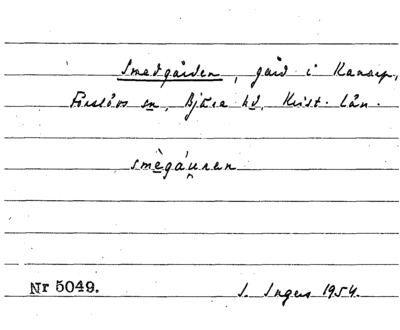 Smedgården, gård i Kanarp,
Förslövs sn, Bjäre hd, Krist. län.
smègáu̯nen
Nr 5049.
I. Ingers 1954.